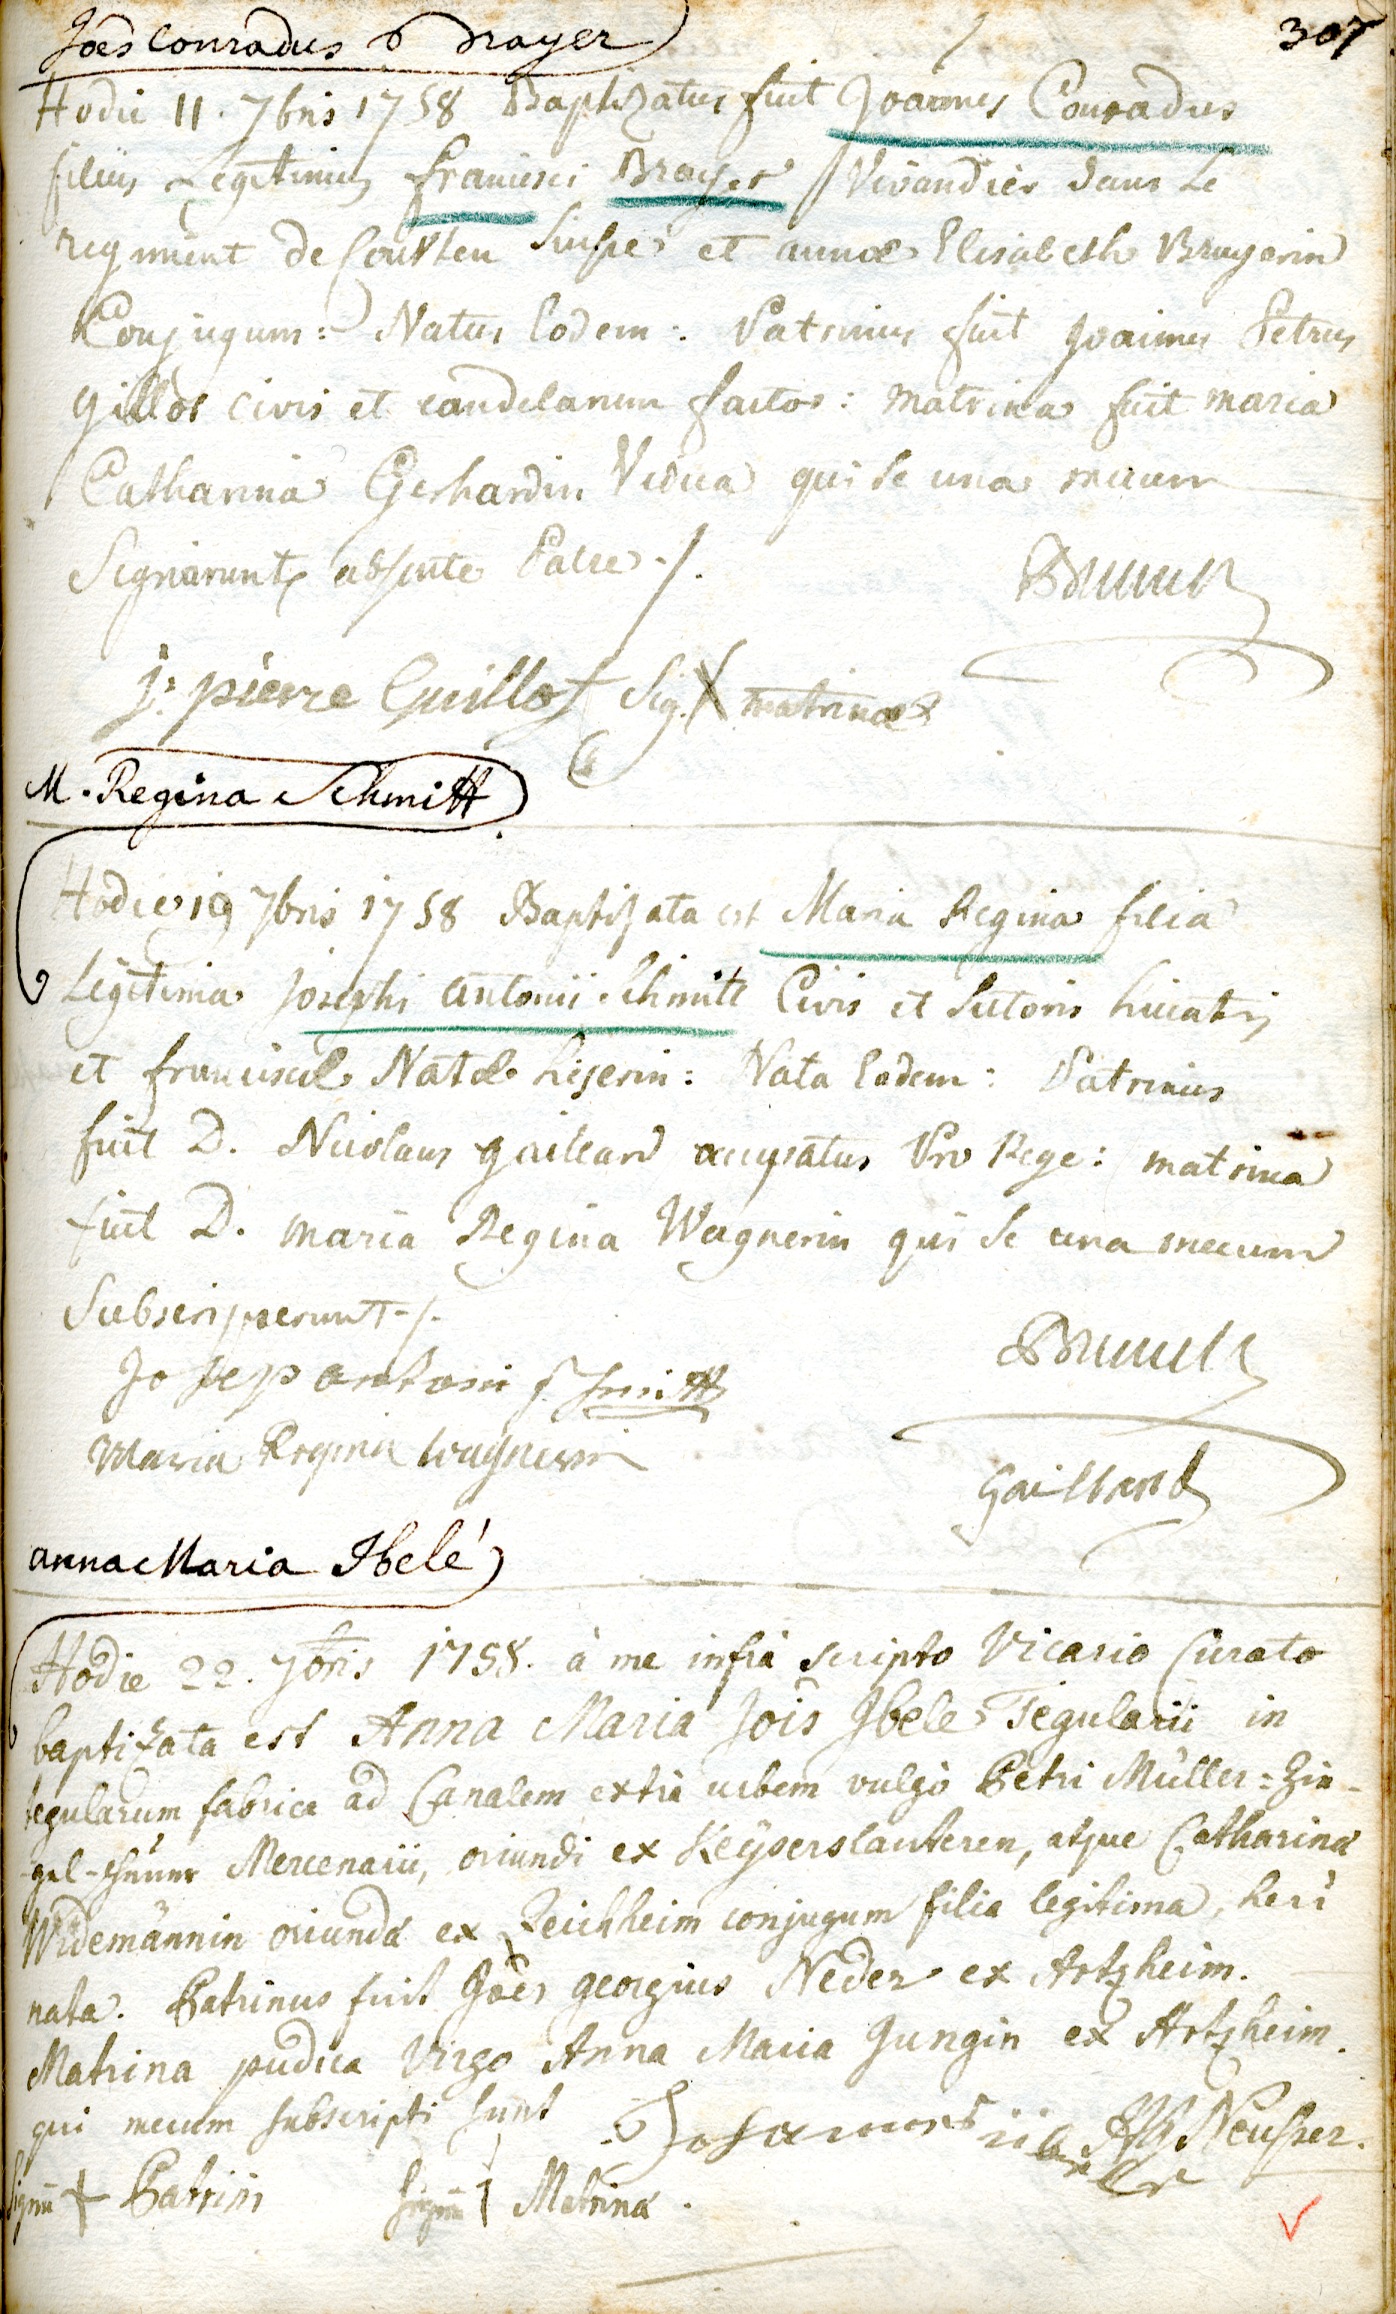 Joês Conradus Brayer
307
Hodie 11. 7bris 1758 Baptizatus fuit Joannes Conradus
filius Legitimus francisci Brayer Vivandier dans Le
regiment de Suisse et annæ Elisabeth Brayerin
Conjugum: Natus Eodem: Patrinus fuit Joannes Petrus
Gillot civis et candelarum factor: matrina fuit maria
Catharina Gerhardin Vidua qui se una mecum
Signarunt absente Patre ./.
j: pierre Guillot Sig. X matrinæ
M. Regina Schmitt
Hodie 19 7bris 1758 Baptizata est Maria Regina filia
Legitima Josephi antonii Schmitt Civis et Sutoris hiccatis
et franciscæ Natæ : Nata Eodem: Patrinus
fuit D. Nicolaus gailliard occupatus Pro Rege: matrina
fuit D. maria Regina Wagnerin qui se una mecum
Subscripserunt ./.
Josep antoni Schmitt
Maria Regina wagnerin
Gaillard
anna Maria Ibelé
Hodie 22. 7bris 1758. à me infrà scripto Vicario Curato
baptizata est Anna Maria Jois Ibele Tegularii in
tegularum fabrica ad Canalem extrà urbem vulgò Petri Müller=Zie-
gel- Mercenarii, oriundi ex Keÿserslauteren, atque Catharina
Widemännin oriundâ ex Zeichheim conjugum filia legitima, heri
nata. Patrinus fuit Joês georgius Neder ex Artzheim.
Matrina pudica Virgo Anna Maria Jungin ex Artzheim.
qui mecum subscripti sunt
Signū + Patrini Signū † Matrinâ.